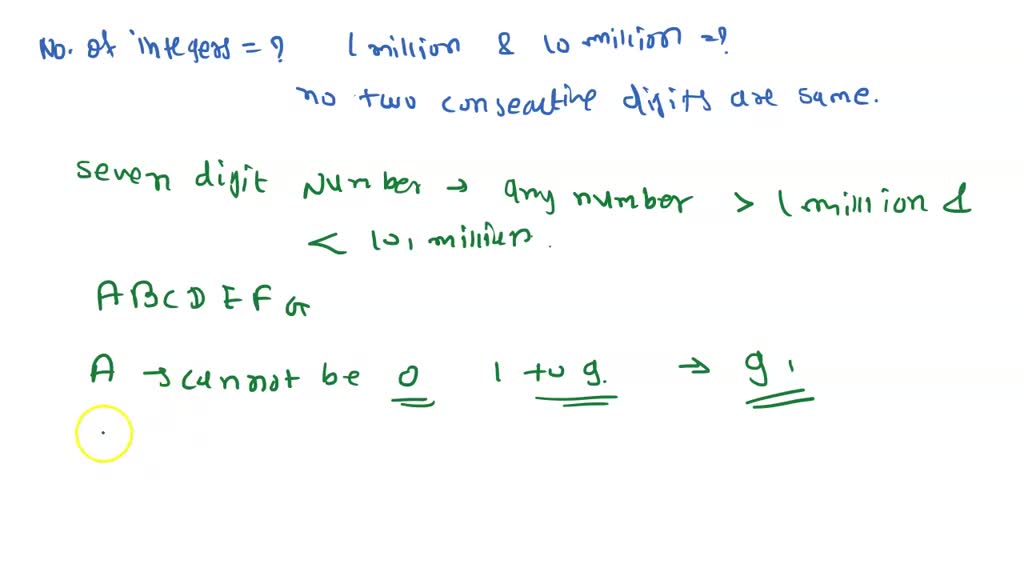 No. of integers = ? 1 million & 10 million = ?
no two consecutive digits are same.
seven digit number → any number > 1 million &
< 10, million.
A B C D E F G
A → cannot be 0 1 to 9. → 9,